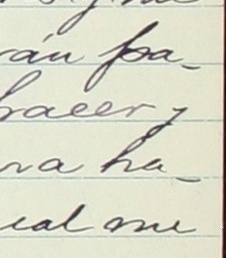 rán pa-
hacer y
ra ha-
ial me